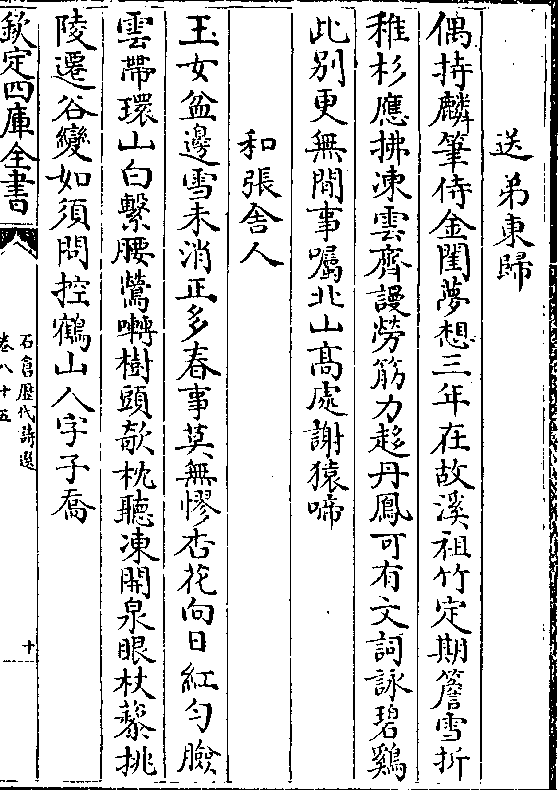 送弟東歸
偶持麟筆侍金閨夢想三年在故溪祖竹定期簷雪折
稚杉應拂凍雲齊謾勞筋力趍丹鳳可有文詞詠碧鷄
此别更無閒事囑北山髙處謝猿啼
和張舍人
玉女盆邊雪未消正多春事莫無憀杏花向日紅勻臉
雲帶環山白繫腰鶯囀樹頭欹枕聽凍開泉眼杖藜挑
陵遷谷變如須問控鶴山人字子喬
欽定四庫全書
石倉歷代詩選
卷八十五
十